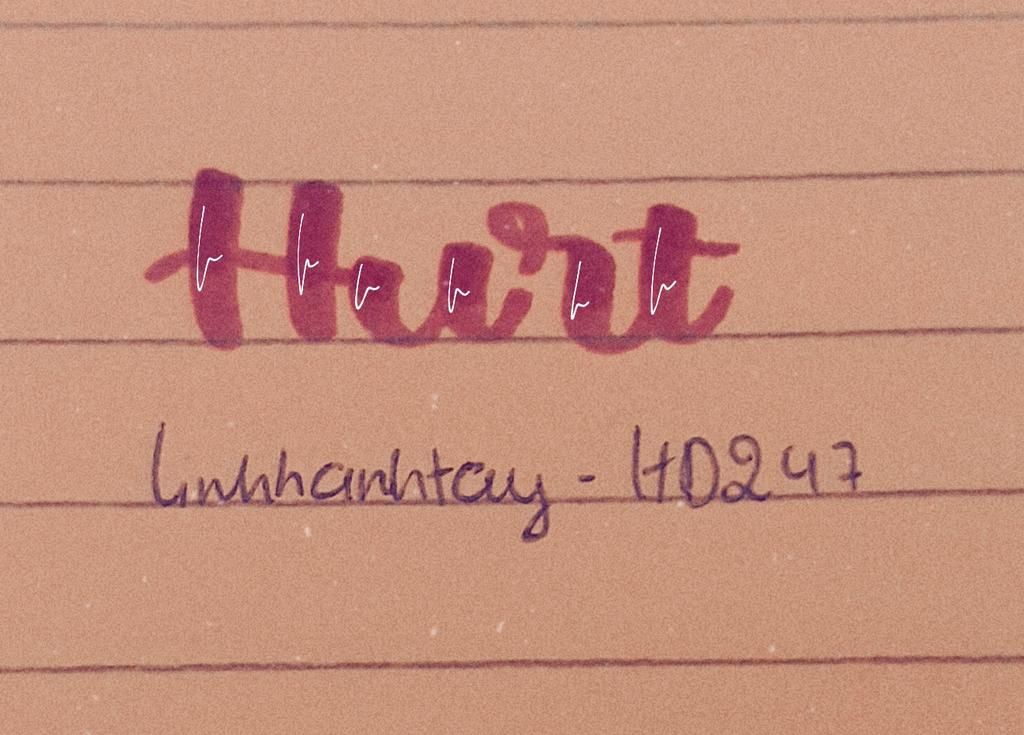 Hurt
linhhanhtay - HD247